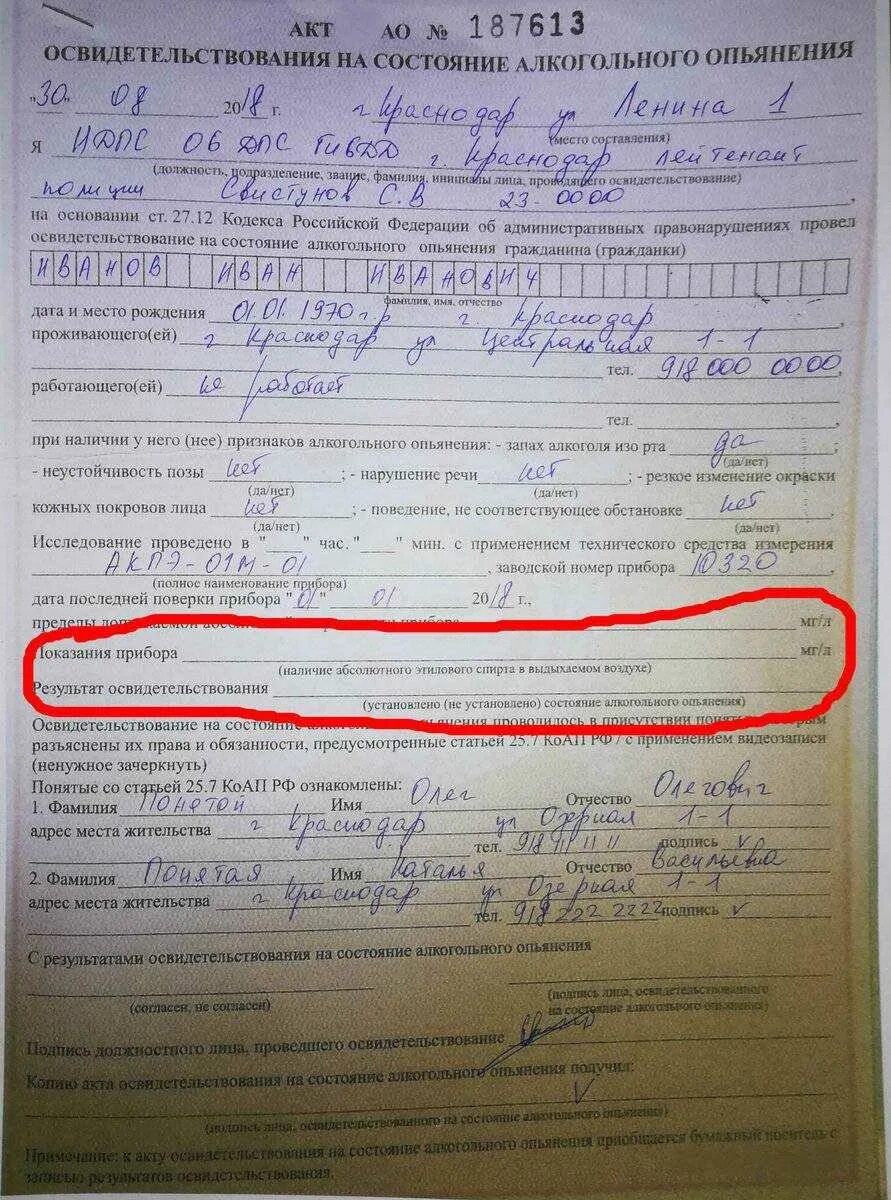 АКТ АО № 187613
ОСВИДЕТЕЛЬСТВОВАНИЯ НА СОСТОЯНИЕ АЛКОГОЛЬНОГО ОПЬЯНЕНИЯ
"30" 08 2018 г. г Краснодар ул Ленина 1
(место составления)
Я ИДПС ОБ ДПС ГИБДД г. Краснодар лейтенант
(должность, подразделение, звание, фамилия, инициалы лица, проводящего освидетельствование)
полиции Свистунов С.В 23-0000
на основании ст. 27.12 Кодекса Российской Федерации об административных правонарушениях провел
освидетельствование на состояние алкогольного опьянения гражданина (гражданки)
ИВАНОВ ИВАН ИВАНОВИЧ
фамилия, имя, отчество
дата и место рождения 01.01.1970г.р г Краснодар,
проживающего(ей) г Краснодар ул Центральная 1-1
тел. 918 000 0000,
работающего(ей) не работает
тел.
при наличии у него (нее) признаков алкогольного опьянения: - запах алкоголя изо рта да;
(да/нет)
- неустойчивость позы нет; - нарушение речи нет; - резкое изменение окраски
(да/нет) (да/нет)
кожных покровов лица нет; - поведение, не соответствующее обстановке нет,
(да/нет) (да/нет)
Исследование проведено в "___" час. "___" мин. с применением технического средства измерения
АКПЭ-01М-01, заводской номер прибора 10320
(полное наименование прибора)
дата последней поверки прибора "01" 01 2018 г.,
пределы допускаемой прибора мг/л
Показания прибора мг/л
(наличие абсолютного этилового спирта в выдыхаемом воздухе)
Результат освидетельствования
(установлено (не установлено) состояние алкогольного опьянения)
Освидетельствование на состояние опьянения проводилось в присутствии
разъяснены их права и обязанности, предусмотренные статьей 25.7 КоАП РФ / с применением видеозаписи
(ненужное зачеркнуть)
Понятые со статьей 25.7 КоАП РФ ознакомлены:
1. Фамилия Понятой Имя Олег Отчество Олегович
адрес места жительства г Краснодар ул Озерная 1-1
тел. 918 111 11 11 подпись v
2. Фамилия Понятая Имя Наталья Отчество Васильевна
адрес места жительства г Краснодар ул Озерная 1-1
тел. 918 222 2222 подпись v
С результатами освидетельствования на состояние алкогольного опьянения
(согласен, не согласен) (подпись лица, освидетельствованного
на состояние алкогольного опьянения)
Подпись должностного лица, проведшего освидетельствование
Копию акта освидетельствования на состояние алкогольного опьянения получил:
V
(подпись лица, освидетельствованного на состояние алкогольного опьянения)
Примечание: к акту освидетельствования на состояние алкогольного опьянения приобщается бумажный носитель с
записью результатов освидетельствования.